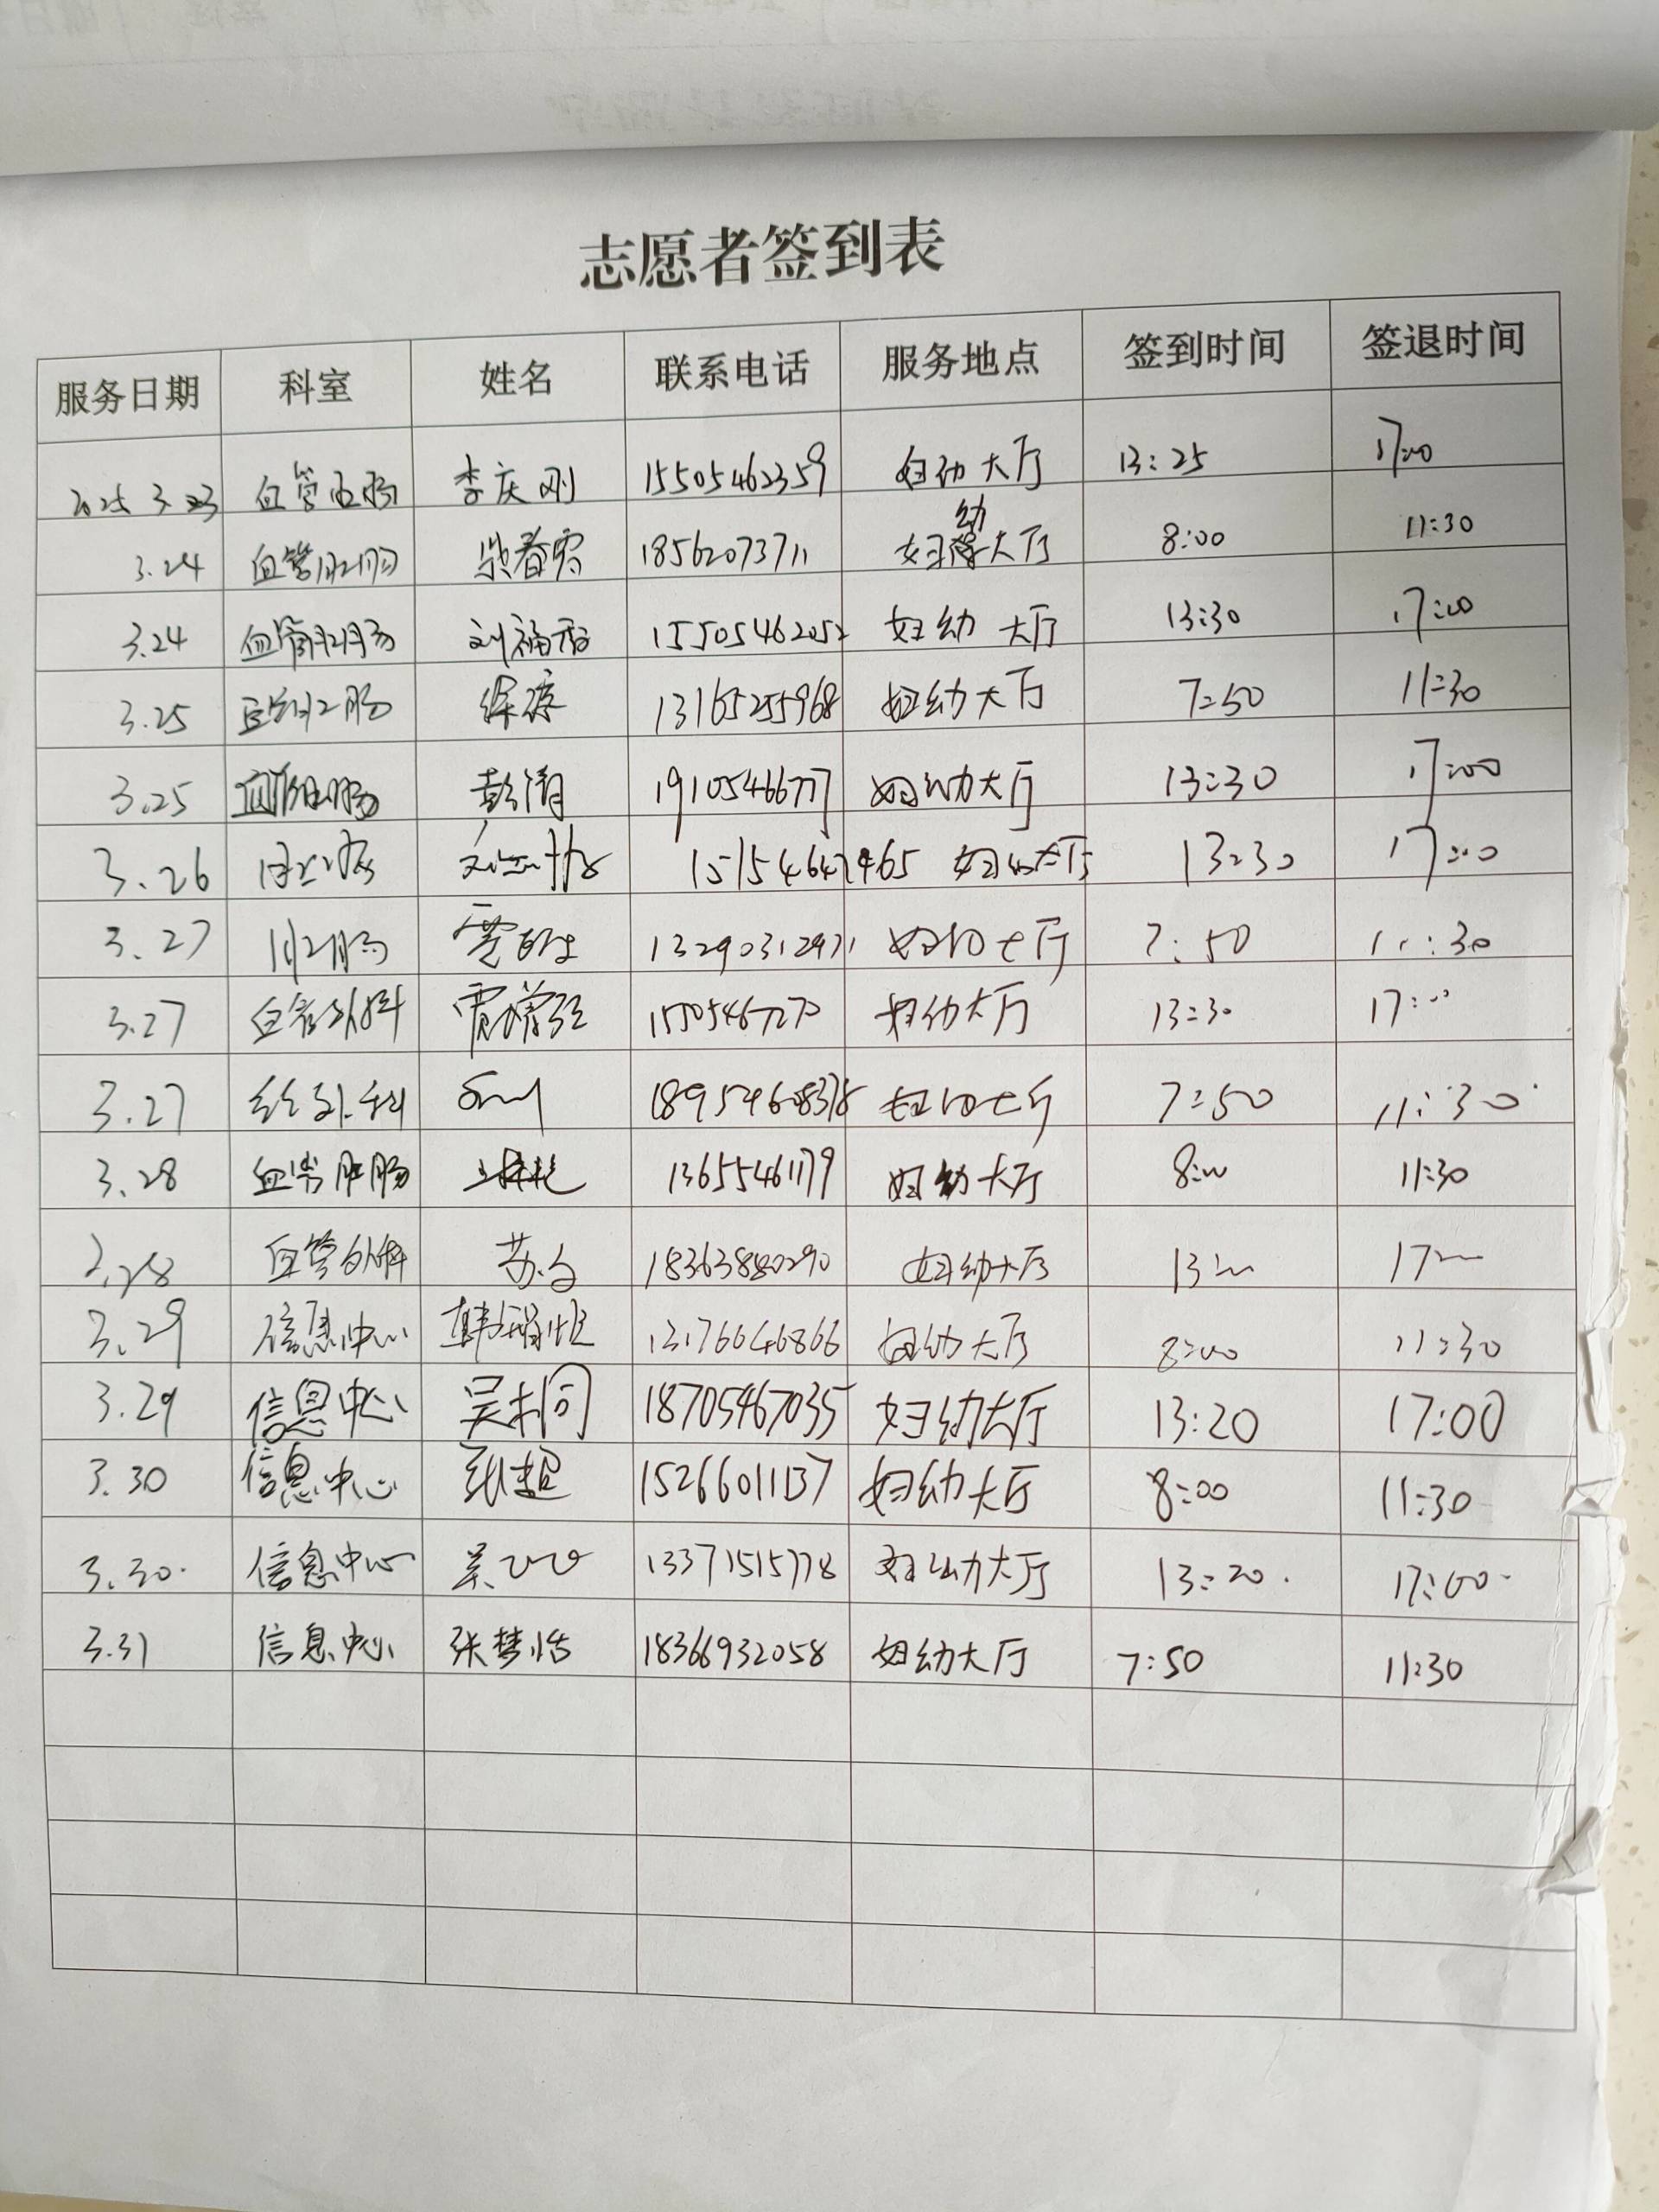 志愿者签到表
服务日期 科室 姓名 联系电话 服务地点 签到时间 签退时间
2025 3.23 血管肛肠 李庆刚 15505462359 妇幼大厅 13:25 17:00
3.24 血管肛肠 18562073711 妇幼大厅 8:00 11:30
3.24 血管肛肠 刘福香 15505462052 妇幼大厅 13:30 17:00
3.25 肛肠 13165255968 妇幼大厅 7:50 11:30
3.25 肛肠 彭清 妇幼大厅 13:30 17:00
3.26 妇幼大厅 13:30 17:00
3.27 肛肠 妇幼大厅 7:50 11:30
3.27 血管外科 妇幼大厅 13:30 17:00
3.27 外科 妇幼大厅 7:50 11:30
3.28 血管肛肠 13655461179 妇幼大厅 8:00 11:30
3.28 血管外科 18363880290 妇幼大厅 13 17
3.29 信息中心 13176646866 妇幼大厅 8:00 11:30
3.29 信息中心 吴桐 18705467035 妇幼大厅 13:20 17:00
3.30 信息中心 张超 15266011137 妇幼大厅 8:00 11:30
3.30. 信息中心 13371515778 妇幼大厅 13:20. 17:00.
3.31 信息中心 张梦恬 18366932058 妇幼大厅 7:50 11:30